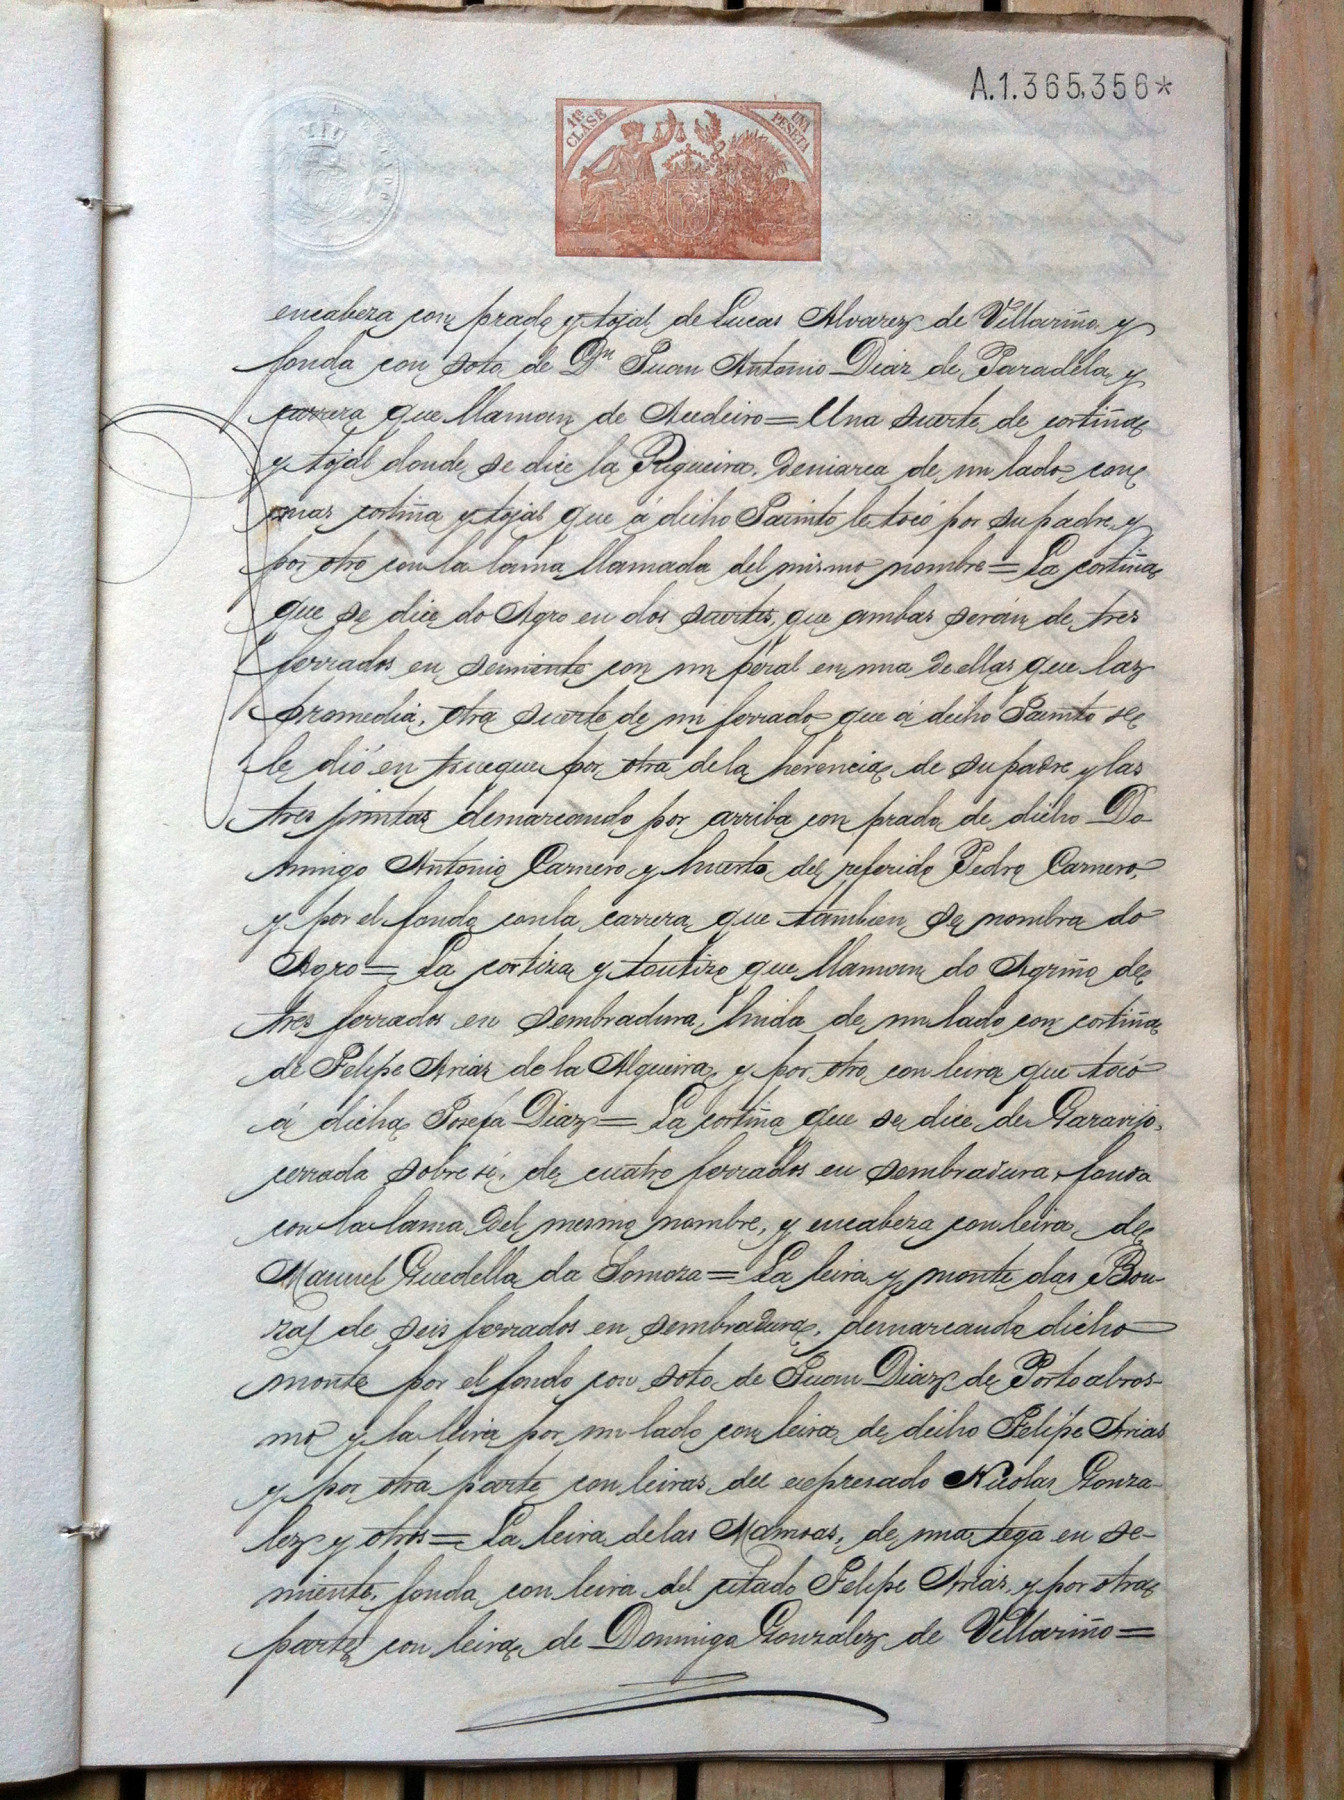 A.1.365,356*
11ª CLASE
UNA PESETA
encabeza con prado y tojal de Lucas Alvarez de Villariño y
fonda con soto de Dn Juan Antonio Diaz de Paradela y
carrera que llaman de Acedeiro = Una suerte de cortiña
y tojal donde se dice la Rigueira, demarca de un lado con
mas cortiña y tojal que á dicho Jacinto le tocó por su padre y
por otro con la lama llamada del mismo nombre = La cortiña
que se dice do Agro en dos suertes, que ambas serán de tres
ferrados en semiente con un peral en una de ellas que las
promedia, otra suerte de un ferrado que á dicho Jacinto se
le dió en trueque por otra de la herencia de su padre y las
tres juntas demarcando por arriba con prado de dicho Do
mingo Antonio Carnero y huerto del referido Pedro Carnero,
y por el fondo con la carrera que tambien se nombra do
Agro = La cortiza y toutizo que llaman do Agriño de
tres ferrados en sembradura, linda de un lado con cortiña
de Felipe Arias de la Algueira, y por otro con leira que tocó
á dicha Josefa Diaz = La cortiña que se dice de Garavijo,
cerrada sobre si, de cuatro ferrados en sembradura, fonda
con la lama del mesmo nombre, y encabeza con leira de
Manuel Guedella da Somoza = La leira y monte das Bou-
zas de seis ferrados en sembradura, demarcando dicho
monte por el fondo con soto de Juan Diaz de Portoabros-
mo y la leira por un lado con leira de dicho Felipe Arias
y por otra parte con leiras del expresado Nicolas Gonza-
lez y otros = La leira de las Mamoas, de una tega en se-
miente, fonda con leira del citado Felipe Arias, y por otra
parte con leira de Domingo Gonzalez de Villariño =